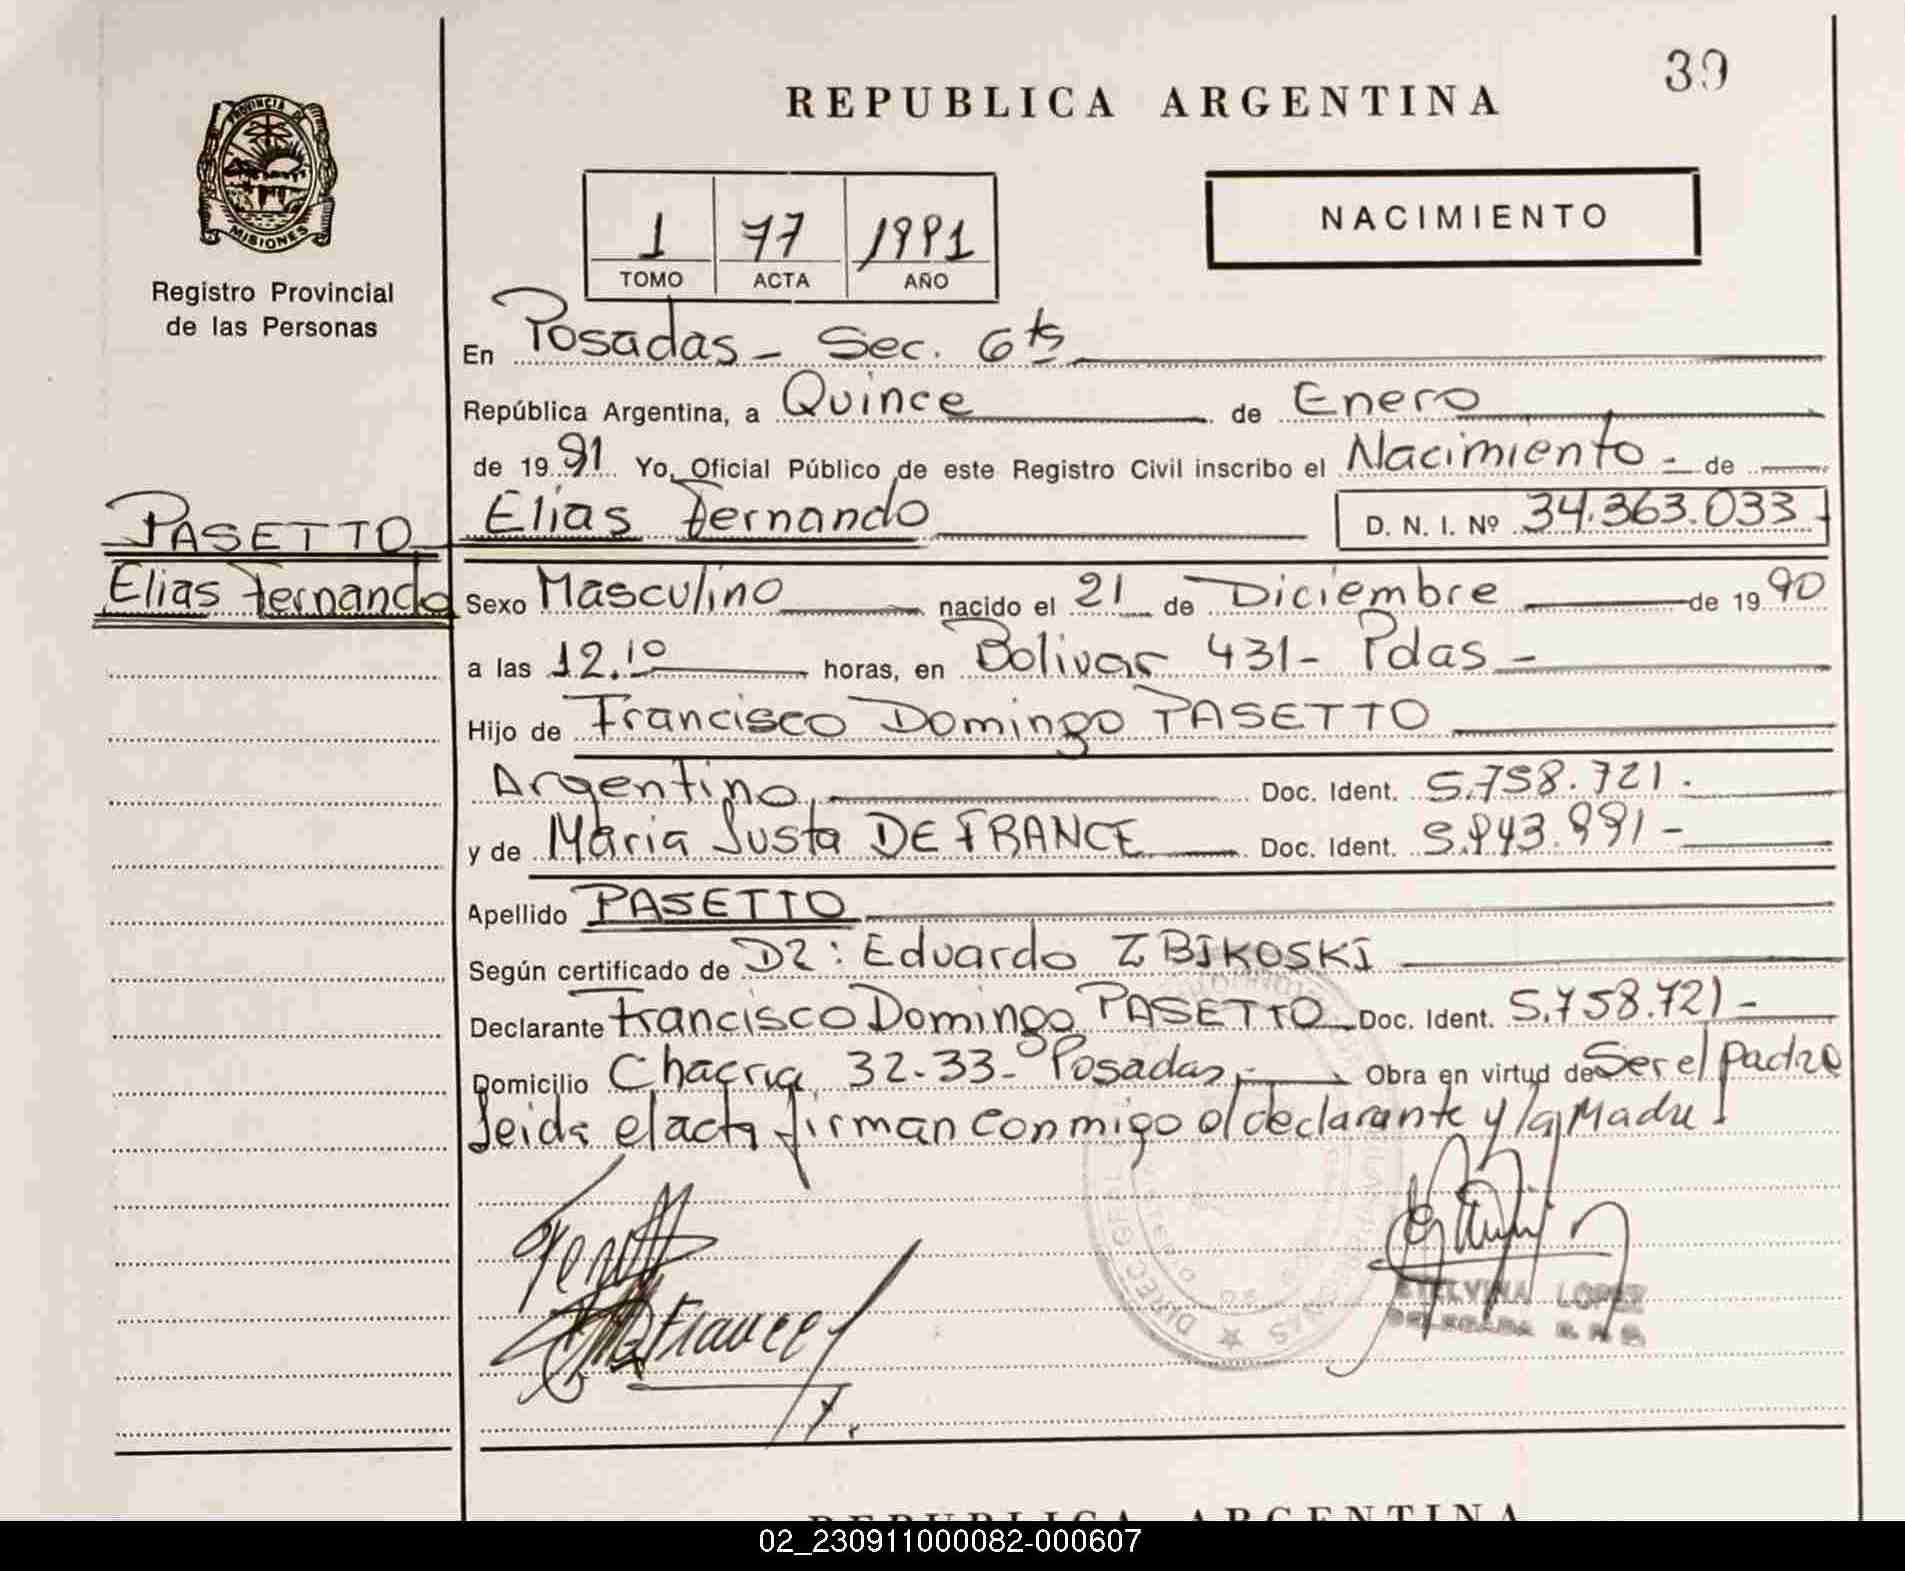 39
REPUBLICA ARGENTINA
PROVINCIA DE
MISIONES
Registro Provincial
de las Personas
1 77 1991
TOMO ACTA AÑO
NACIMIENTO
En Posadas - Sec. 6ta
República Argentina, a Quince de Enero
de 1991 Yo, Oficial Público de este Registro Civil inscribo el Nacimiento - de
PASETTO Elias Fernando D. N. I. Nº 34.363.033-
Elias Fernando
Sexo Masculino nacido el 21 de Diciembre de 1990
a las 12.10 horas, en Bolivar 431- Pdas -
Hijo de Francisco Domingo PASETTO
Argentino, Doc. Ident. 5.758.721.
y de Maria Justa DE FRANCE Doc. Ident.
Apellido PASETTO
Según certificado de Dr: Eduardo ZBIKOSKI
Declarante Francisco Domingo PASETTO Doc. Ident. 5.758.721-
Domicilio Chacra 32-33- Posadas, Obra en virtud de Ser el padre
Leida el acta firman conmigo el declarante y la Madre
ETELVINA LOPEZ
DELEGADA R. P. P.
REPUBLICA ARGENTINA
02_230911000082-000607